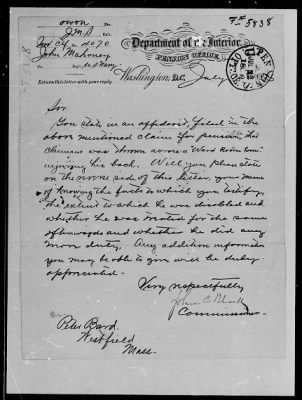 Department of the Interior,
PENSION OFFICE,
Washington, D.C., July
John Mahoney
U.S. Navy.
Return this letter with your reply.
Sir:
You state in an affidavit filed in the
above mentioned claim for pension that
claimant was thrown across a Ward Room
injuring his back. Will you please state
on the reverse side of this letter, your means
of knowing the facts to which you testify,
the extent to which he was disabled and
whether he was treated for the same
afterwards and whether he did any
more duty. Any addition information
you may be able to give will be duly
appreciated.
Very respectfully
John C Black
Commissioner
Peter Bard.
Westfield
Mass.